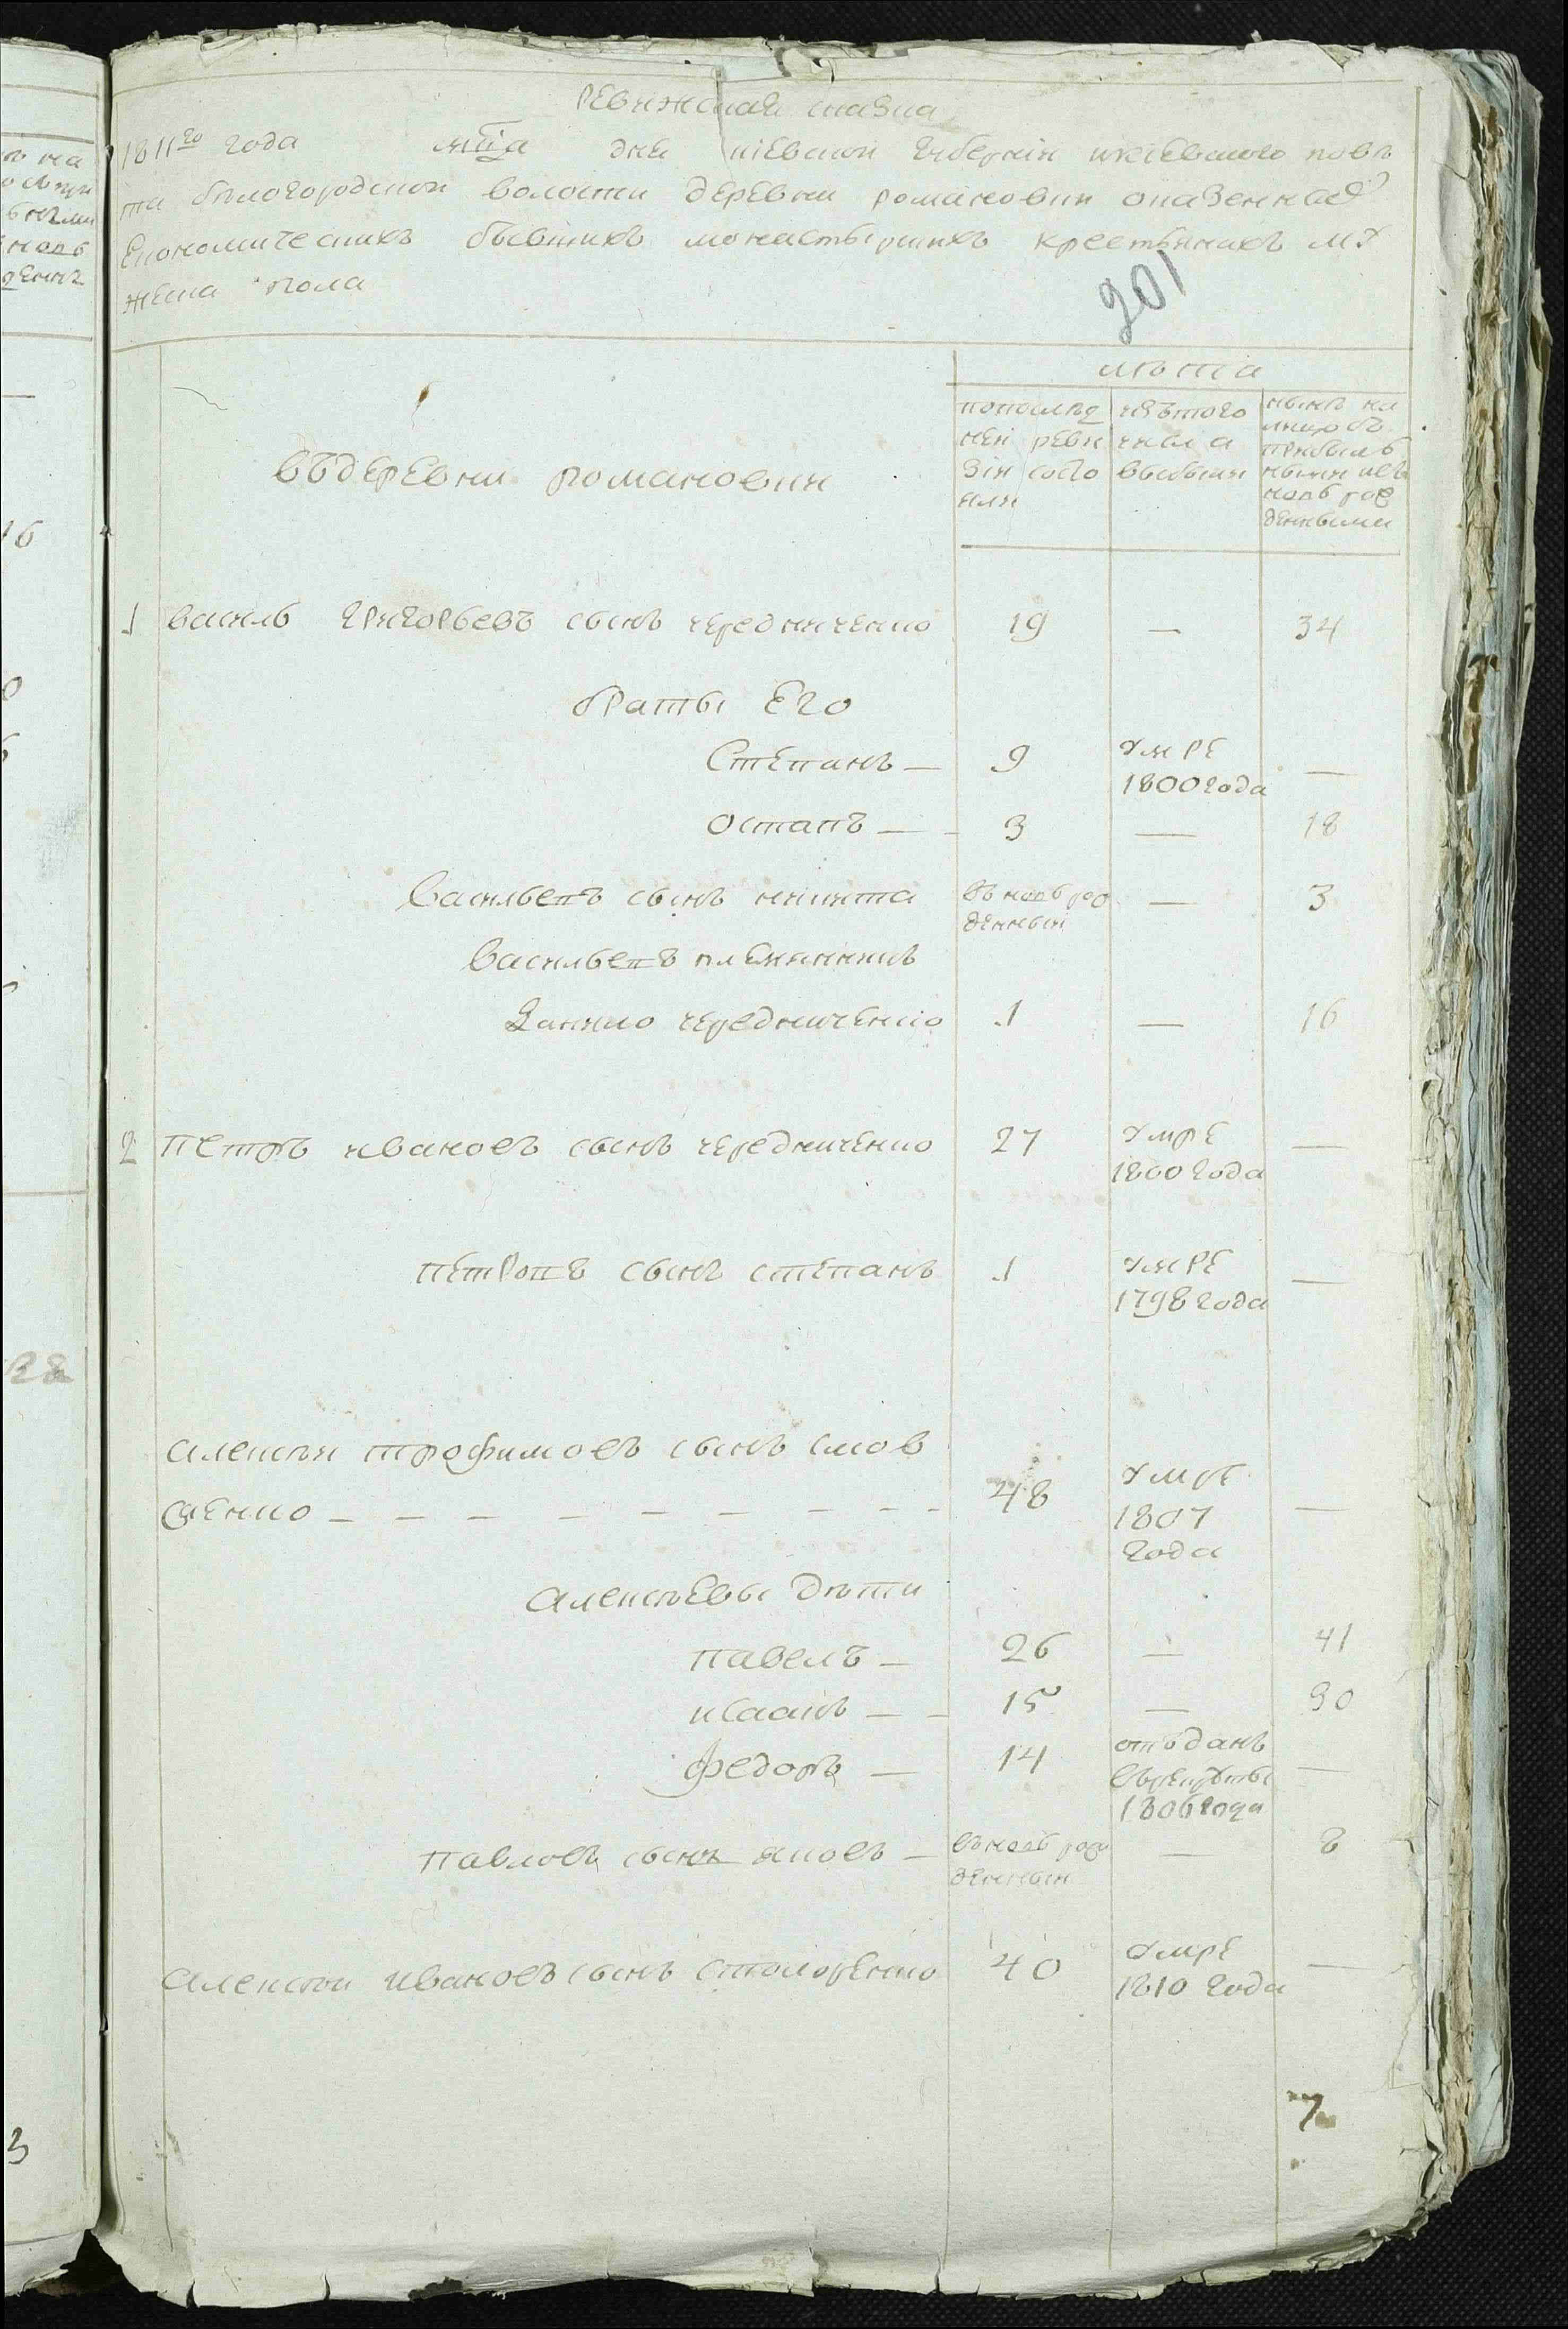 Ревижская сказка
1811го года мца дня киевской губернїи икїевского повѣ
та бѣлогородской волости деревни романовки оказенныхъ
Економическихъ бывшихъ монастырскихъ крестьянахъ му
жеска пола
201
лѣта
попослѣд
ней реви
зїи состо
яли
изътого
числа
выбыли
нынѣ на
лицо съ
прибыль
ными ивъ
новь рож
денными
въдеревни романовки
1 василь григорьевъ сынъ чередниченко 19 — 34
браты Его
Степанъ — 9 умре 1800 года —
остапъ — 3 — 18
Васильевъ сынъ никита въновь рож денный — 3
Васильевъ племянникъ
Данило чередниченко 1 — 16
2 Петръ ивановъ сынъ чередниченко 27 умре 1800 года —
петровъ сынъ степанъ 1 умре 1798 года —
алексѣй трофимовъ сынъ
сенко — — — — — — — — 48 умре 1807 года —
алексѣевы дѣти
павелъ — 26 — 41
исаакъ — 15 — 30
федоръ — 14 отъданъ врекруты 1806 года —
павловъ сынъ яковъ — въновь рож денный — 8
алексѣй ивановъ сынъ столяренко 40 умре 1810 года —
7
16
3